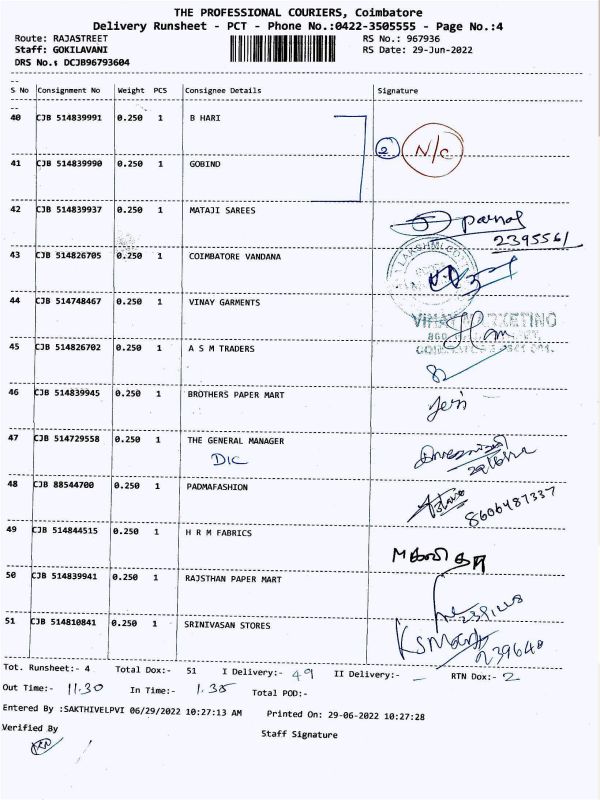 THE PROFESSIONAL COURIERS, Coimbatore
Delivery Runsheet - PCT - Phone No.:0422-3505555 - Page No.:4
Route: RAJASTREET RS No.: 967936
Staff: GOKILAVANI RS Date: 29-Jun-2022
DRS No.: DCJB96793604
S No Consignment No Weight PCS Consignee Details Signature
40 CJB 514839991 0.250 1 B HARI
2 N/C
41 CJB 514839990 0.250 1 GOBIND
42 CJB 514839937 0.250 1 MATAJI SAREES
2395561
43 CJB 514826705 0.250 1 COIMBATORE VANDANA
44 CJB 514748467 0.250 1 VINAY GARMENTS
VINAY MARKETING
45 CJB 514826702 0.250 1 A S M TRADERS
46 CJB 514839945 0.250 1 BROTHERS PAPER MART
47 CJB 514729558 0.250 1 THE GENERAL MANAGER
DIC
48 CJB 88544700 0.250 1 PADMAFASHION
8606487337
49 CJB 514844515 0.250 1 H R M FABRICS
50 CJB 514839941 0.250 1 RAJSTHAN PAPER MART
51 CJB 514810841 0.250 1 SRINIVASAN STORES
Tot. Runsheet:- 4 Total Dox:- 51 I Delivery:- 49 II Delivery:- - RTN Dox:- 2
Out Time:- 11.30 In Time:- 1.35 Total POD:-
Entered By :SAKTHIVELPVI 06/29/2022 10:27:13 AM Printed On: 29-06-2022 10:27:28
Verified By Staff Signature